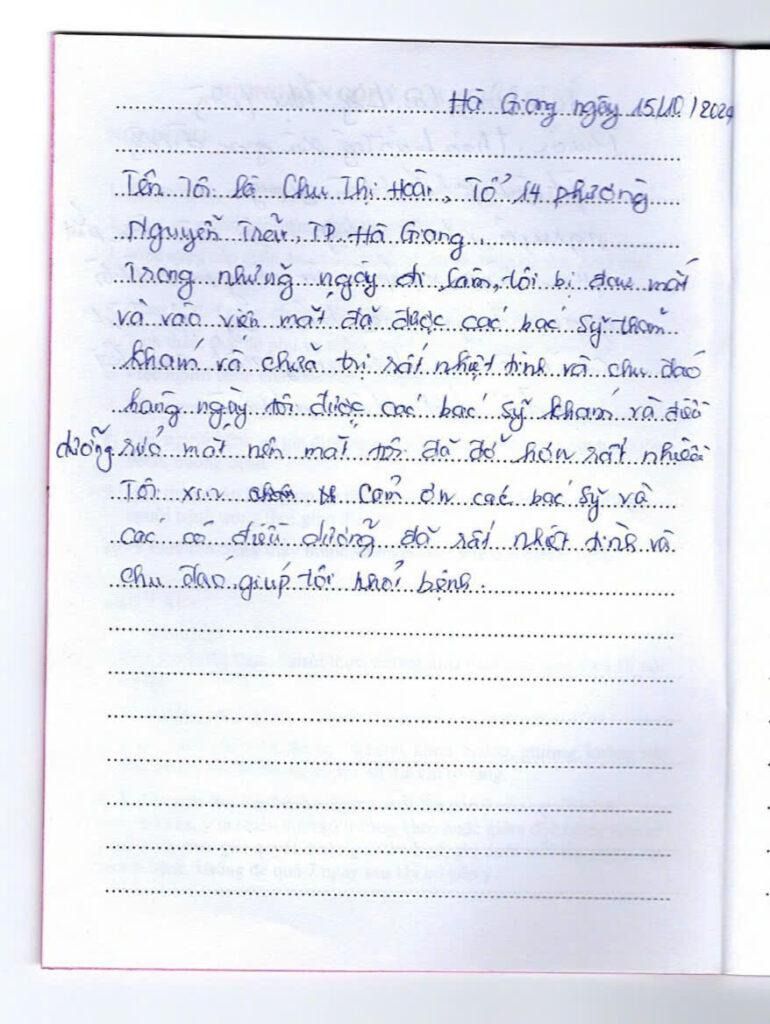 Hà Giang ngày 15/10/2024
Tên tôi là Chu Thị Hoài, Tổ 14 phường
Nguyễn Trãi, TP. Hà Giang.
Trong những ngày đi làm, tôi bị đau mắt
và vào viện mắt đã được các bác sỹ thăm
khám và chữa trị rất nhiệt tình và chu đáo
hàng ngày tôi được các bác sỹ khám và điều
dưỡng rửa mắt nên mắt tôi đã đỡ hơn rất nhiều
Tôi xin cảm ơn các bác sỹ và
các cô điều dưỡng đã rất nhiệt tình và
chu đáo giúp tôi khỏi bệnh.